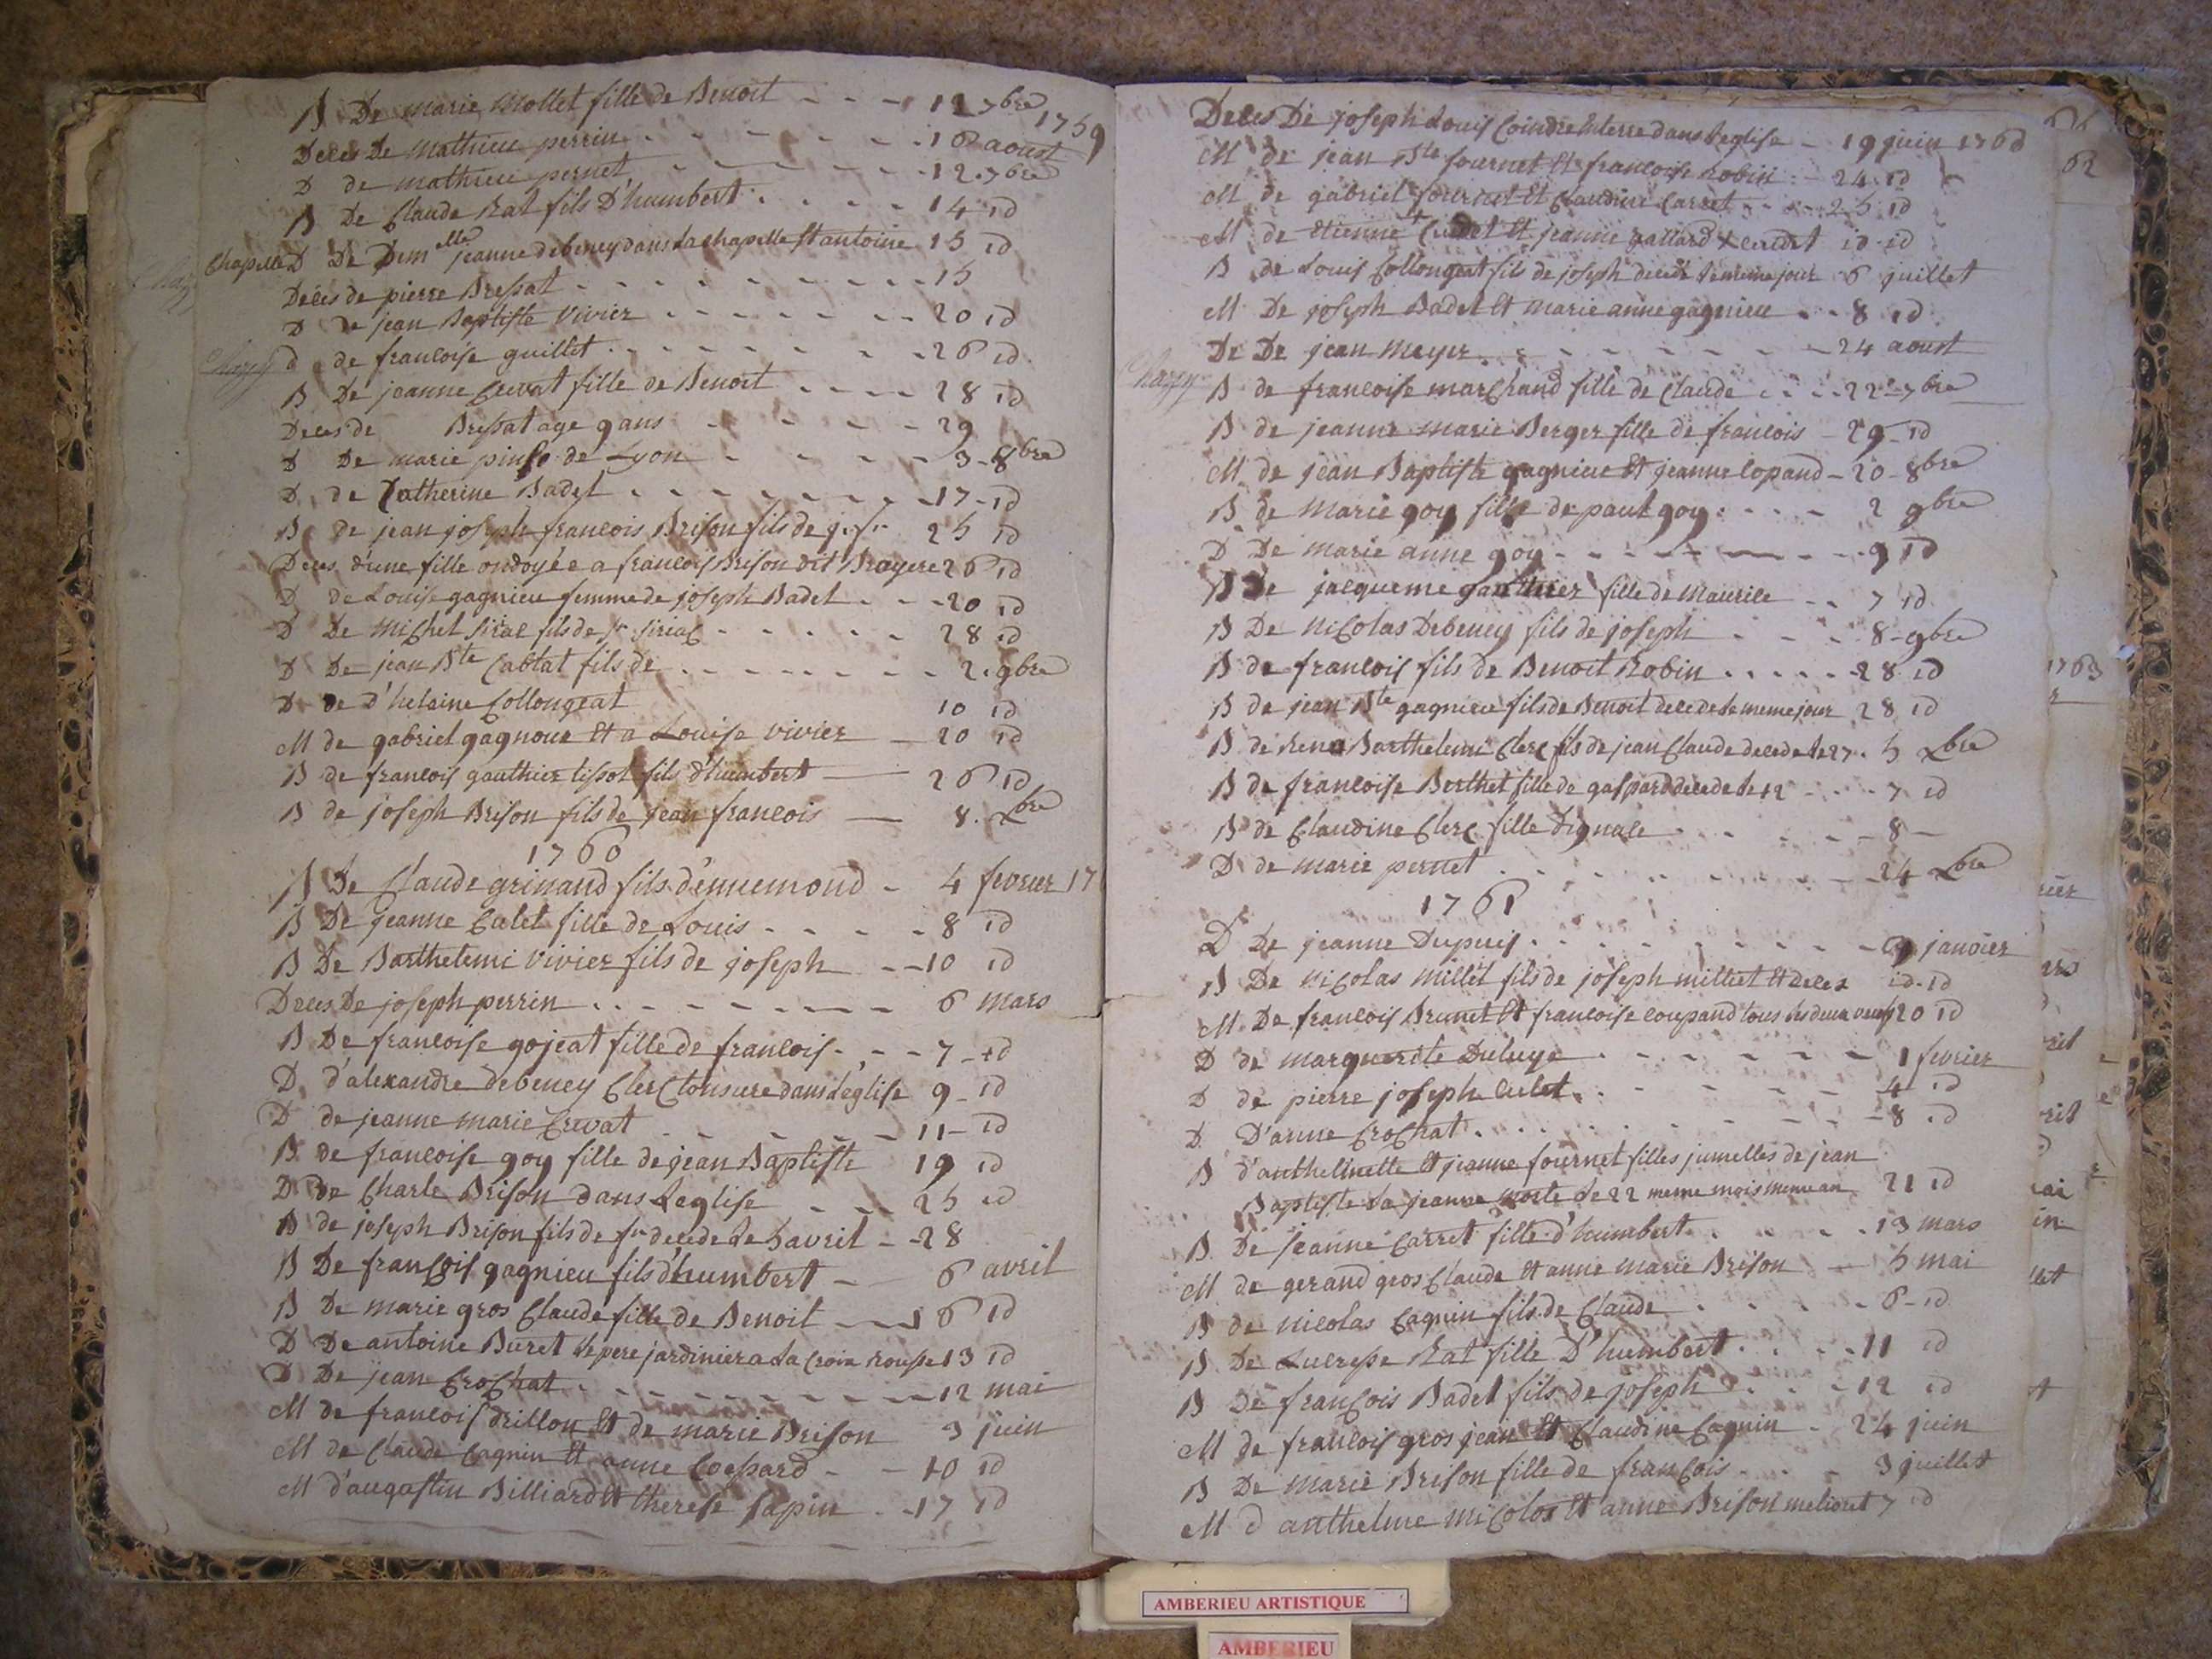 B De marie Mollet fille de Benoit - - - 12 7bre
1759
Deces De mathieu perrin - - - 16 aoust
D de mathieu pernet - - - 12 7bre
B De Claude Rat fils D'humbert - - - 14 id
Chapelle D De Demelle jeanne debeney dans la chapelle St antoine 15 id
Deces de pierre Bressat - - - 15
D De jean Baptiste Vivier - - - 20 id
Chazey d de francoise guillet - - - 26 id
B De jeanne Crevat fille de Benoit - - - 28 id
Deces de Bressat age 9 ans - - - 29
D De marie de Lyon - - - 3 8bre
D de Catherine Badet - - - 17 id
B de jean joseph francois Brison fils de 25 id
Deces d'une fille ondoyée a francois Brison dit Brayere 26 id
D de Louise gagnieu femme de joseph Badet - - - 20 id
D De Michel - - - 28 id
D De jean Bte Cabtat fils de - - - 2 9bre
D de d'helaine Collongeat 10 id
M de gabriel gagnoux Et a Louise vivier - 20 id
B de francois gauthier tissot fils d'humbert - 26 id
B de joseph Brison fils de jean francois - 8 Xbre
1760
B De Claude grinand fils d'ennemond - 4 fevrier 17
B De jeanne Culet fille de Louis - - - 8 id
B De Barthelemi Vivier fils de joseph - - 10 id
Deces De joseph perrin - - - 6 mars
B De francoise gojeat fille de francois - - - 7 id
D d'alexandre Debeney Clerc tonsure dans L'église 9 id
D de jeanne marie Crevat - - - 11 id
B de francoise goy fille de jean Baptiste 19 id
D de Charle Brison dans L'eglise - - 25 id
B de joseph Brison fils de fr decede le 5 avril - 28
B De francois gagnieu fils d'humbert - 6 avril
B De marie gros Claude fille de Benoit - 16 id
D De antoine Buret le pere jardinier a La Croix rousse 13 id
D De jean Crochat - - - 12 mai
M de francois drillon Et de marie Brison 3 juin
M de Claude Cagnin Et anne Coepard - 10 id
M d'augastin Billiard Et therese sapin - 17 id
Deces De joseph Louis Coindre Enterre dans L'eglise - 19 juin 1760
62
M de jean Bte fournet Et francoise Robin - 24 id
M de gabriel fournet Et Claudine Carret - - - 25 id
M de Etienne Et jeanne gallard id id
B de Louis Collongeat fils de joseph decede le meme jour 6 juillet
M De joseph Badet Et marie anne gagnieu - - 8 id
De De jean Meyer - - - 24 aoust
Chazey B de francoise marchand fille de Claude - - - 22 7bre
B de jeanne marie Berger fille de francois - 29 id
M de jean Baptiste gagnieu Et jeanne Copand - 20 8bre
B de Marie goy fille de paul goy - - - 2 9bre
D De marie anne goy - - - 9 id
B De jacqueme gauthier fille de Maurile - - 7 id
B De Nicolas Debeney fils de joseph - - - 8 9bre
B de francois fils de Benoit Robin - - - 28 id
B de jean Bte gagnieu fils de Benoit decede le meme jour 28 id
B de Rene Barthelemi Clerc fils de jean Claude decede le 27 5 Xbre
B de francoise Berthet fille de gaspard decede le 12 - - - 7 id
B de Claudine Clerc fille Dignale - - - 8 -
D de marie pernet - - - 24 Xbre
1761
D De jeanne Dupuis - - - 9 janvier
B De Nicolas Millet fils de joseph milliet Et deces id id
M De francois Brunet Et francoise Coupand tous les deux veufs 20 id
D de marguerite Duluye - - - 1 fevrier
D de pierre joseph Culet - - - 4 id
D D'anne Crochat - - - 8 id
B d'anthelmette Et jeanne fournet filles jumelles de jean
Baptiste La jeanne morte le 22 meme mois meme an 21 id
B De jeanne Carret fille d'humbert - - - 13 mars
M de gerand gros Claude Et anne Marie Brison - 5 mai
B de nicolas Cagnin fils de Claude - - - 6 id
B De Lucresse Rat fille D'humbert - - - 11 id
B De francois Badet fils de joseph - - - 12 id
M de francois gros jean Et Claudine Cagnin - 24 juin
B De marie Brison fille de francois - - - 3 juillet
M d anthelme micolos Et anne Brison melioret 7 id
1763
AMBERIEU ARTISTIQUE
AMBERIEU